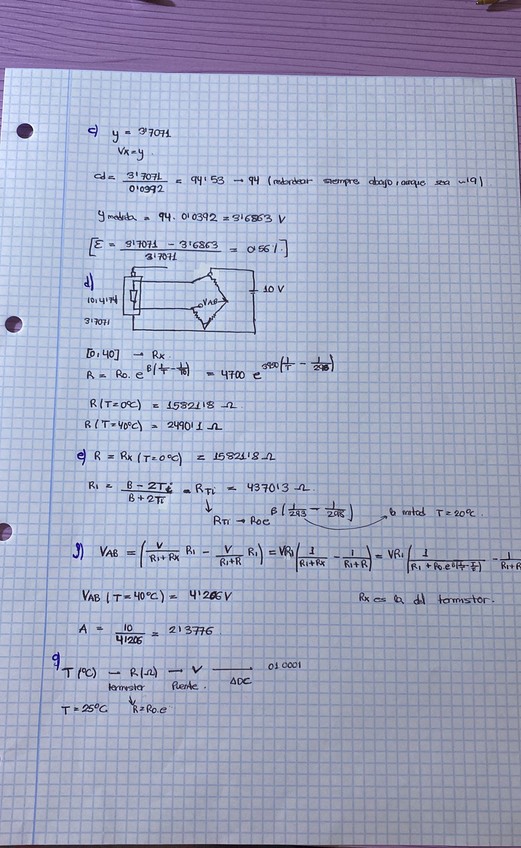 c) y = 3'7071
Vx = y
cd = 3'7071 / 0'0392 = 94'53 → 94 (redondear siempre abajo, aunque sea '19)
y medida = 94 · 0'0392 = 3'6863 V
[ε = 3'7071 − 3'6863 / 3'7071 = 0'56%]
d)
VAB
10 V
3'7071
[0,40] → Rx
R = R0 · e^B(1/T − 1/T0) = 4700 e^3980(1/T − 1/298)
R (T=0ºC) = 15821'8 Ω
R (T=40ºC) = 2490'1 Ω
e) R = Rx (T=0ºC) = 15821'8 Ω
R1 = B − 2Ti / B + 2Ti · RTi = 4370'3 Ω
RTi → R0e^B(1/293 − 1/298) mitad T=20ºC
f) VAB = (V / R1+Rx R1 − V / R1+R R1) = VR1(1 / R1+Rx − 1 / R1+R) = VR1(1 / R1 + R0·e^B(1/T − 1/T0) − 1 / R1+R
VAB (T=40ºC) = 4'206 V
Rx es la del termistor.
A = 10 / 4'1206 = 2'3776
g) T(ºC) — R(Ω) → V 010001
termistor Puente. ADC
T = 25ºC R=R0.e